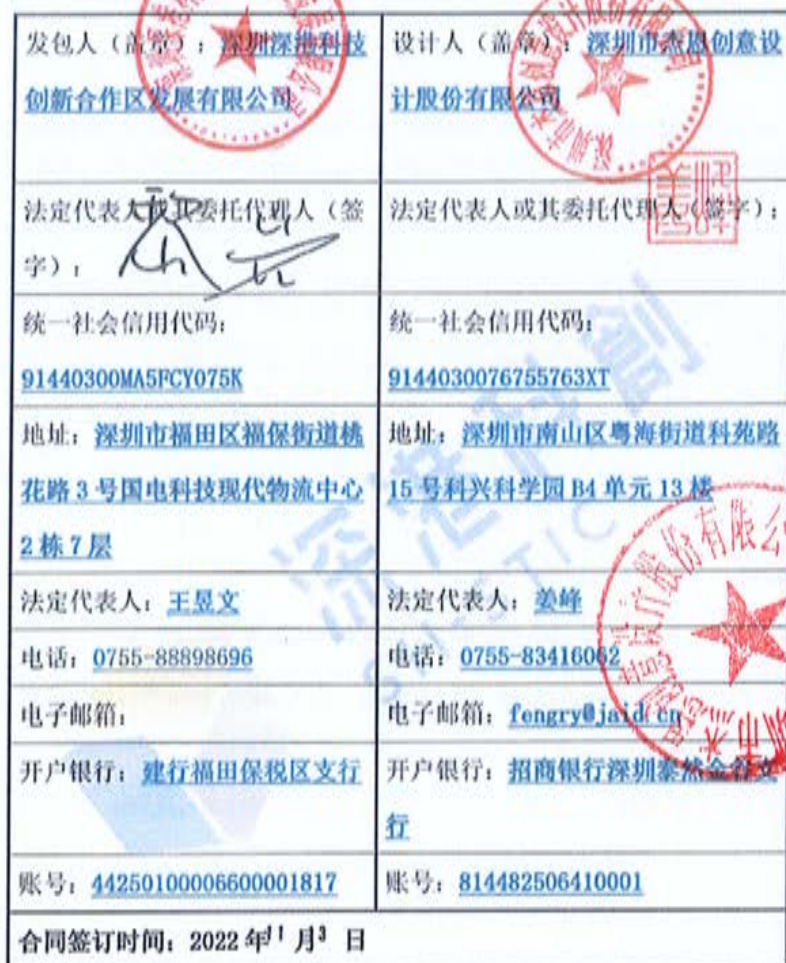 发包人（盖章）：深圳深港科技
创新合作区发展有限公司
设计人（盖章）：深圳市杰恩创意设
计股份有限公司
法定代表人或其委托代理人（签
字）：
法定代表人或其委托代理人（签字）：
统一社会信用代码：
91440300MA5FCY075K
统一社会信用代码：
9144030076755763XT
地址：深圳市福田区福保街道桃
花路 3 号国电科技现代物流中心
2 栋 7 层
地址：深圳市南山区粤海街道科苑路
15 号科兴科学园 B4 单元 13 楼
法定代表人：王昱文
法定代表人：姜峰
电话：0755-88898696
电话：0755-83416062
电子邮箱：
电子邮箱：fengry@jaid.cn
开户银行：建行福田保税区支行
开户银行：招商银行深圳泰然金谷支
行
账号：44250100006600001817
账号：814482506410001
合同签订时间：2022 年11 月3 日
深港科創